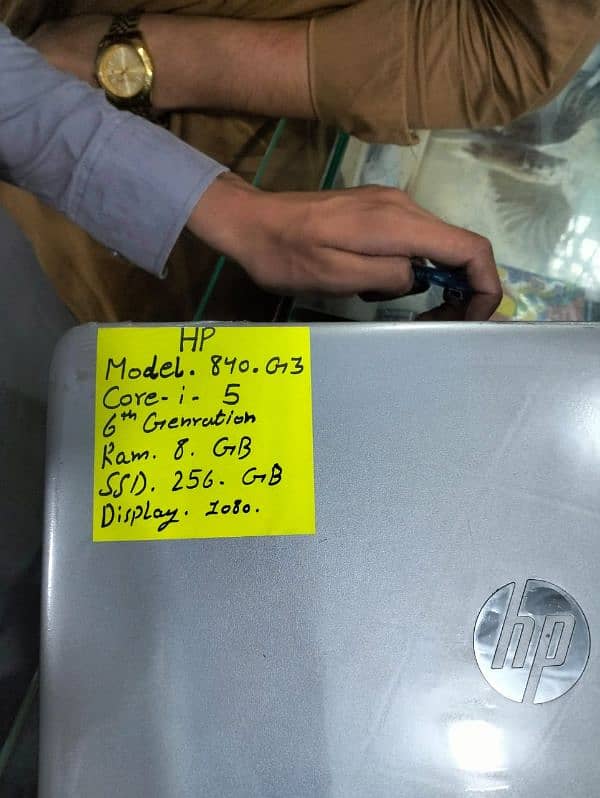 HP
Model. 840. G3
Core- i - 5
6th Genration
Ram. 8. GB
SSD. 256. GB
Display. 1080.
hp